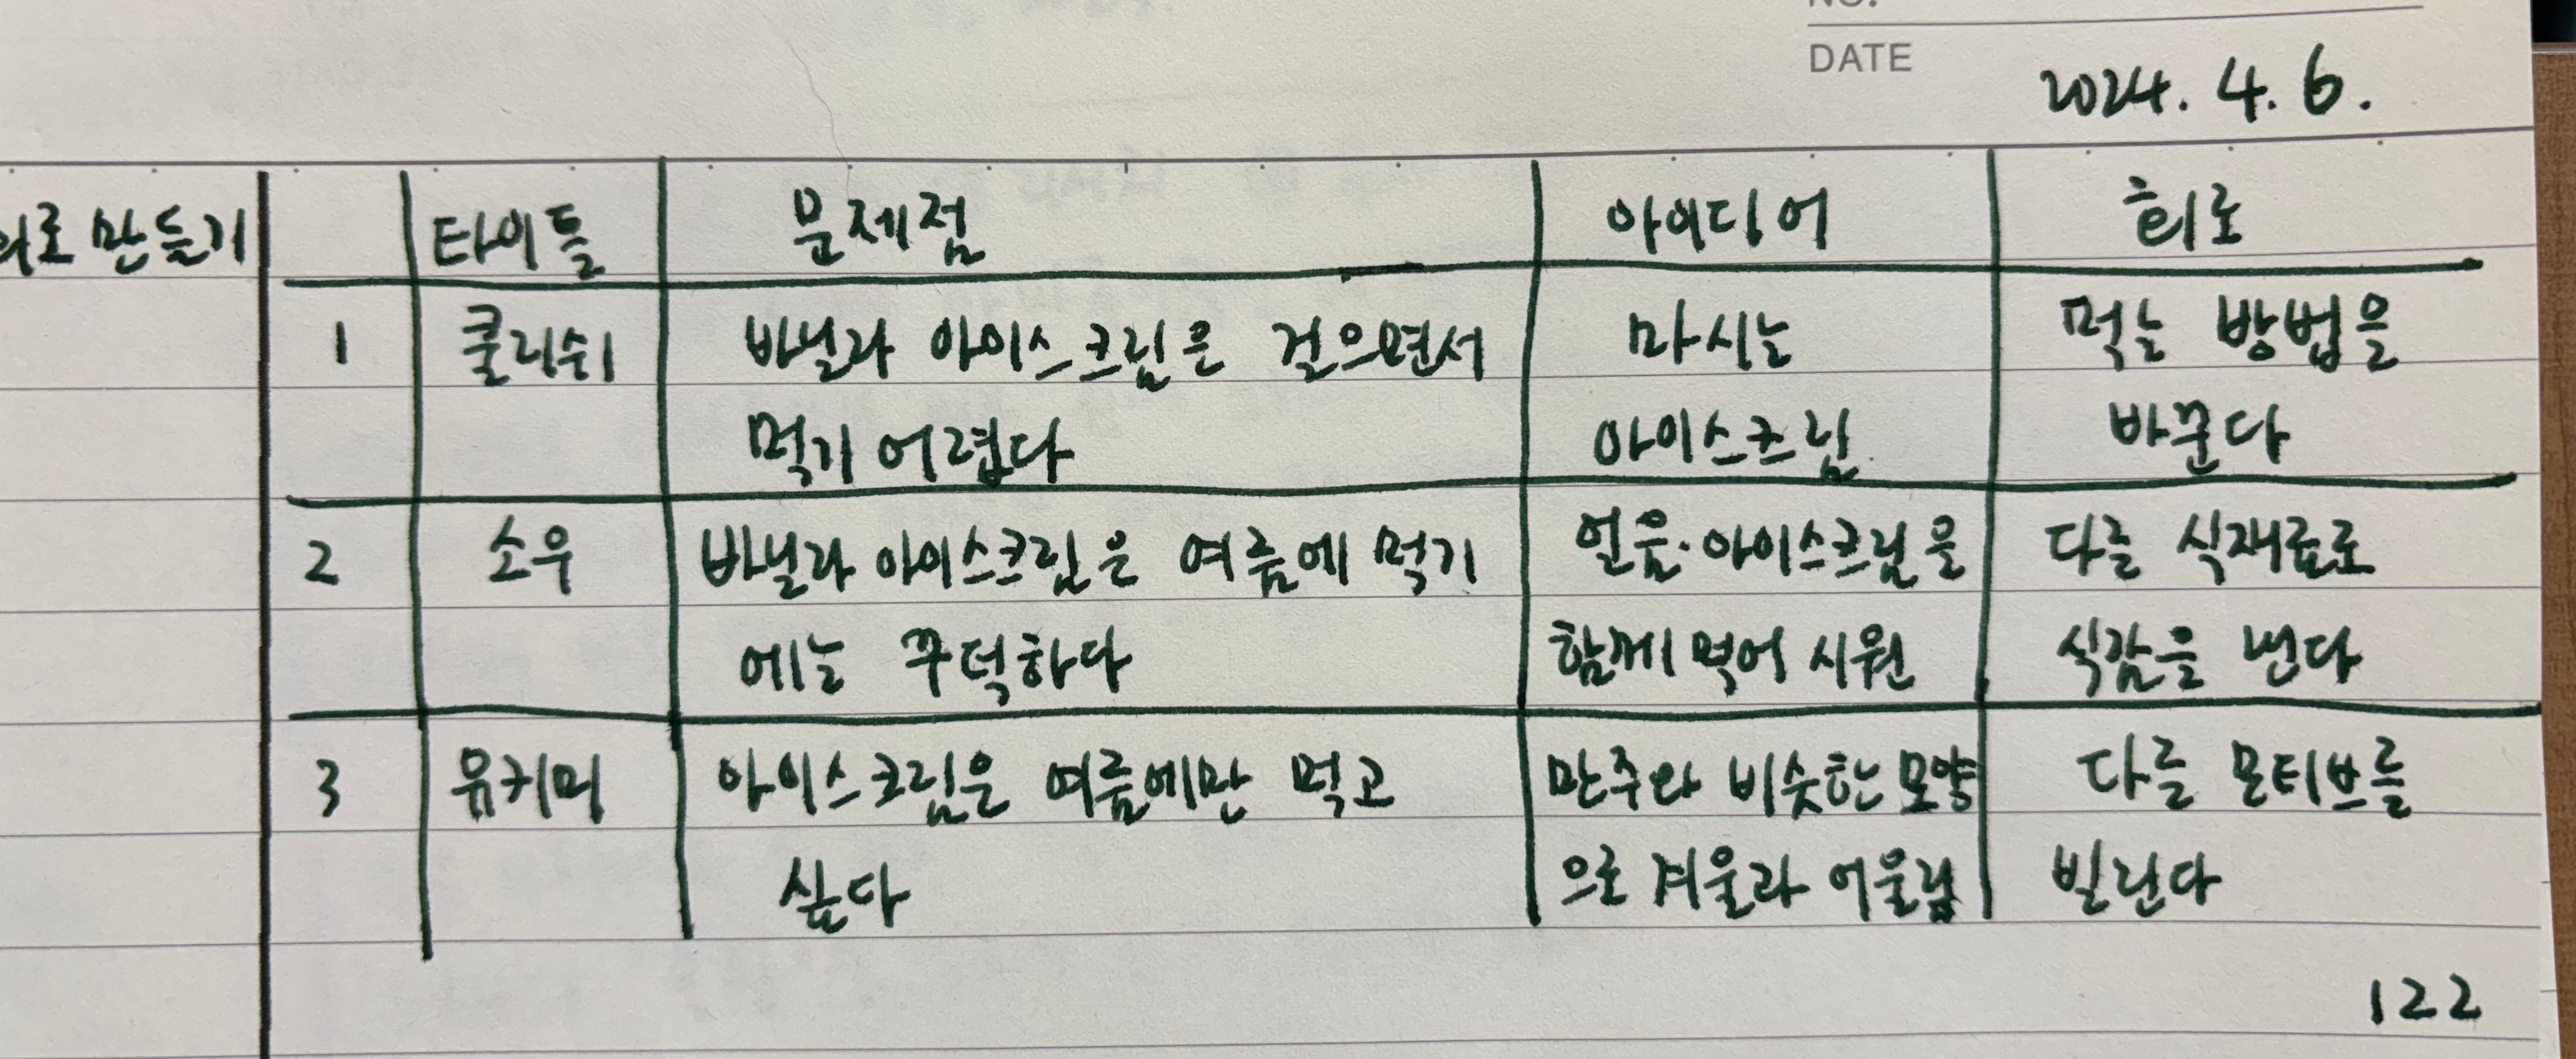 DATE
2024. 4. 6.
회로 만들기
타이틀 문제점 아이디어 회로
1 쿨리쉬 바닐라 아이스크림은 걸으면서 마시는 먹는 방법을
먹기 어렵다 아이스크림 바꾼다
2 소우 바닐라 아이스크림은 여름에 먹기 얼음·아이스크림을 다른 식재료로
에는 꾸덕하다 함께 먹어 시원 식감을 낸다
3 유키미 아이스크림은 여름에만 먹고 만주와 비슷한 모양 다른 모티브를
싶다 으로 겨울과 어울림 빌린다
122